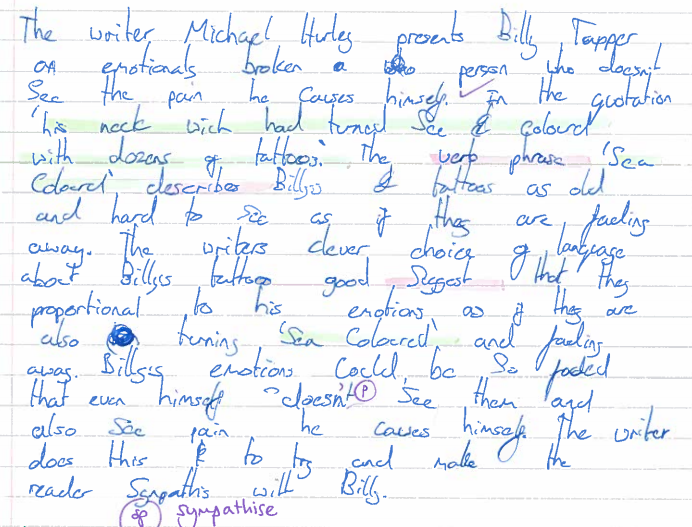 The writer Michael Hurley presents Billy Tapper
as emotionals broken a person who doesn't
See the pain he causes himself. In the quotation
'his neck wich had turned See Colourd
with dozens of tattoos.' The verb phrase 'Sea
Coloured' describes Billys tattoos as old
and hard to see as if they are fading
away. The writers clever choice of language
about Billys's tattoo good Suggest that they
proportional to his emotions as if they are
also turning 'Sea Coloured' and fading
away. Billys's emotions Could be So faded
that even himself doesn't (P) See them and
also See pain he causes himself. The writer
does this to try and make the
reader Sympathis with Billy.
(sp) sympathise